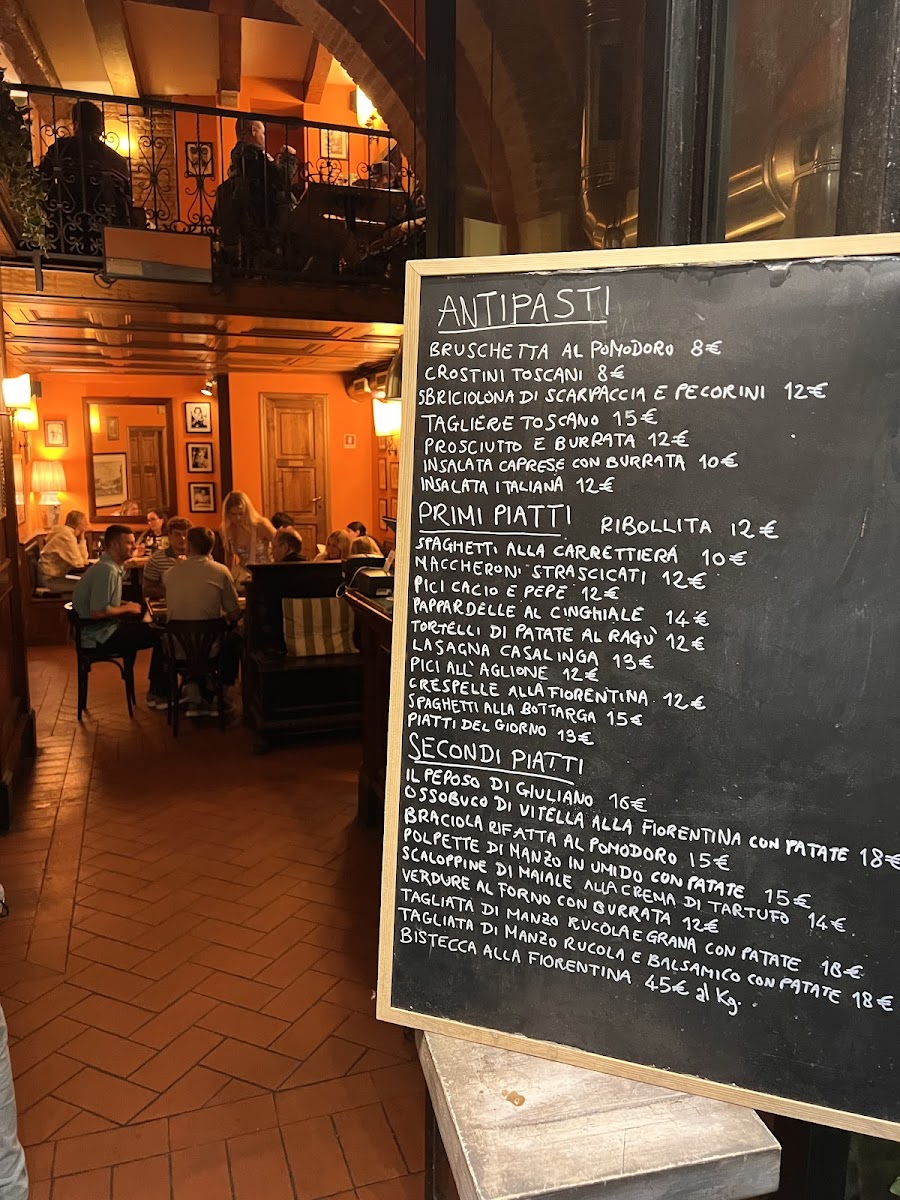 ANTIPASTI
BRUSCHETTA AL POMODORO 8€
CROSTINI TOSCANI 8€
SBRICIOLONA DI SCARPACCIA E PECORINI 12€
TAGLIERE TOSCANO 15€
PROSCIUTTO E BURRATA 12€
INSALATA CAPRESE CON BURRATA 10€
INSALATA ITALIANA 12€
PRIMI PIATTI RIBOLLITA 12€
SPAGHETTI ALLA CARRETTIERA 10€
MACCHERONI STRASCICATI 12€
PICI CACIO E PEPE 12€
PAPPARDELLE AL CINGHIALE 14€
TORTELLI DI PATATE AL RAGÙ 12€
LASAGNA CASALINGA 13€
PICI ALL'AGLIONE 12€
CRESPELLE ALLA FIORENTINA 12€
SPAGHETTI ALLA BOTTARGA 15€
PIATTI DEL GIORNO 13€
SECONDI PIATTI
IL PEPOSO DI GIULIANO 16€
OSSOBUCO DI VITELLA ALLA FIORENTINA CON PATATE 18€
BRACIOLA RIFATTA AL POMODORO 15€
POLPETTE DI MANZO IN UMIDO CON PATATE 15€
SCALOPPINE DI MAIALE ALLA CREMA DI TARTUFO 14€.
VERDURE AL FORNO CON BURRATA 12€
TAGLIATA DI MANZO RUCOLA E GRANA CON PATATE 18€
TAGLIATA DI MANZO RUCOLA E BALSAMICO CON PATATE 18€
BISTECCA ALLA FIORENTINA 45€ al Kg.